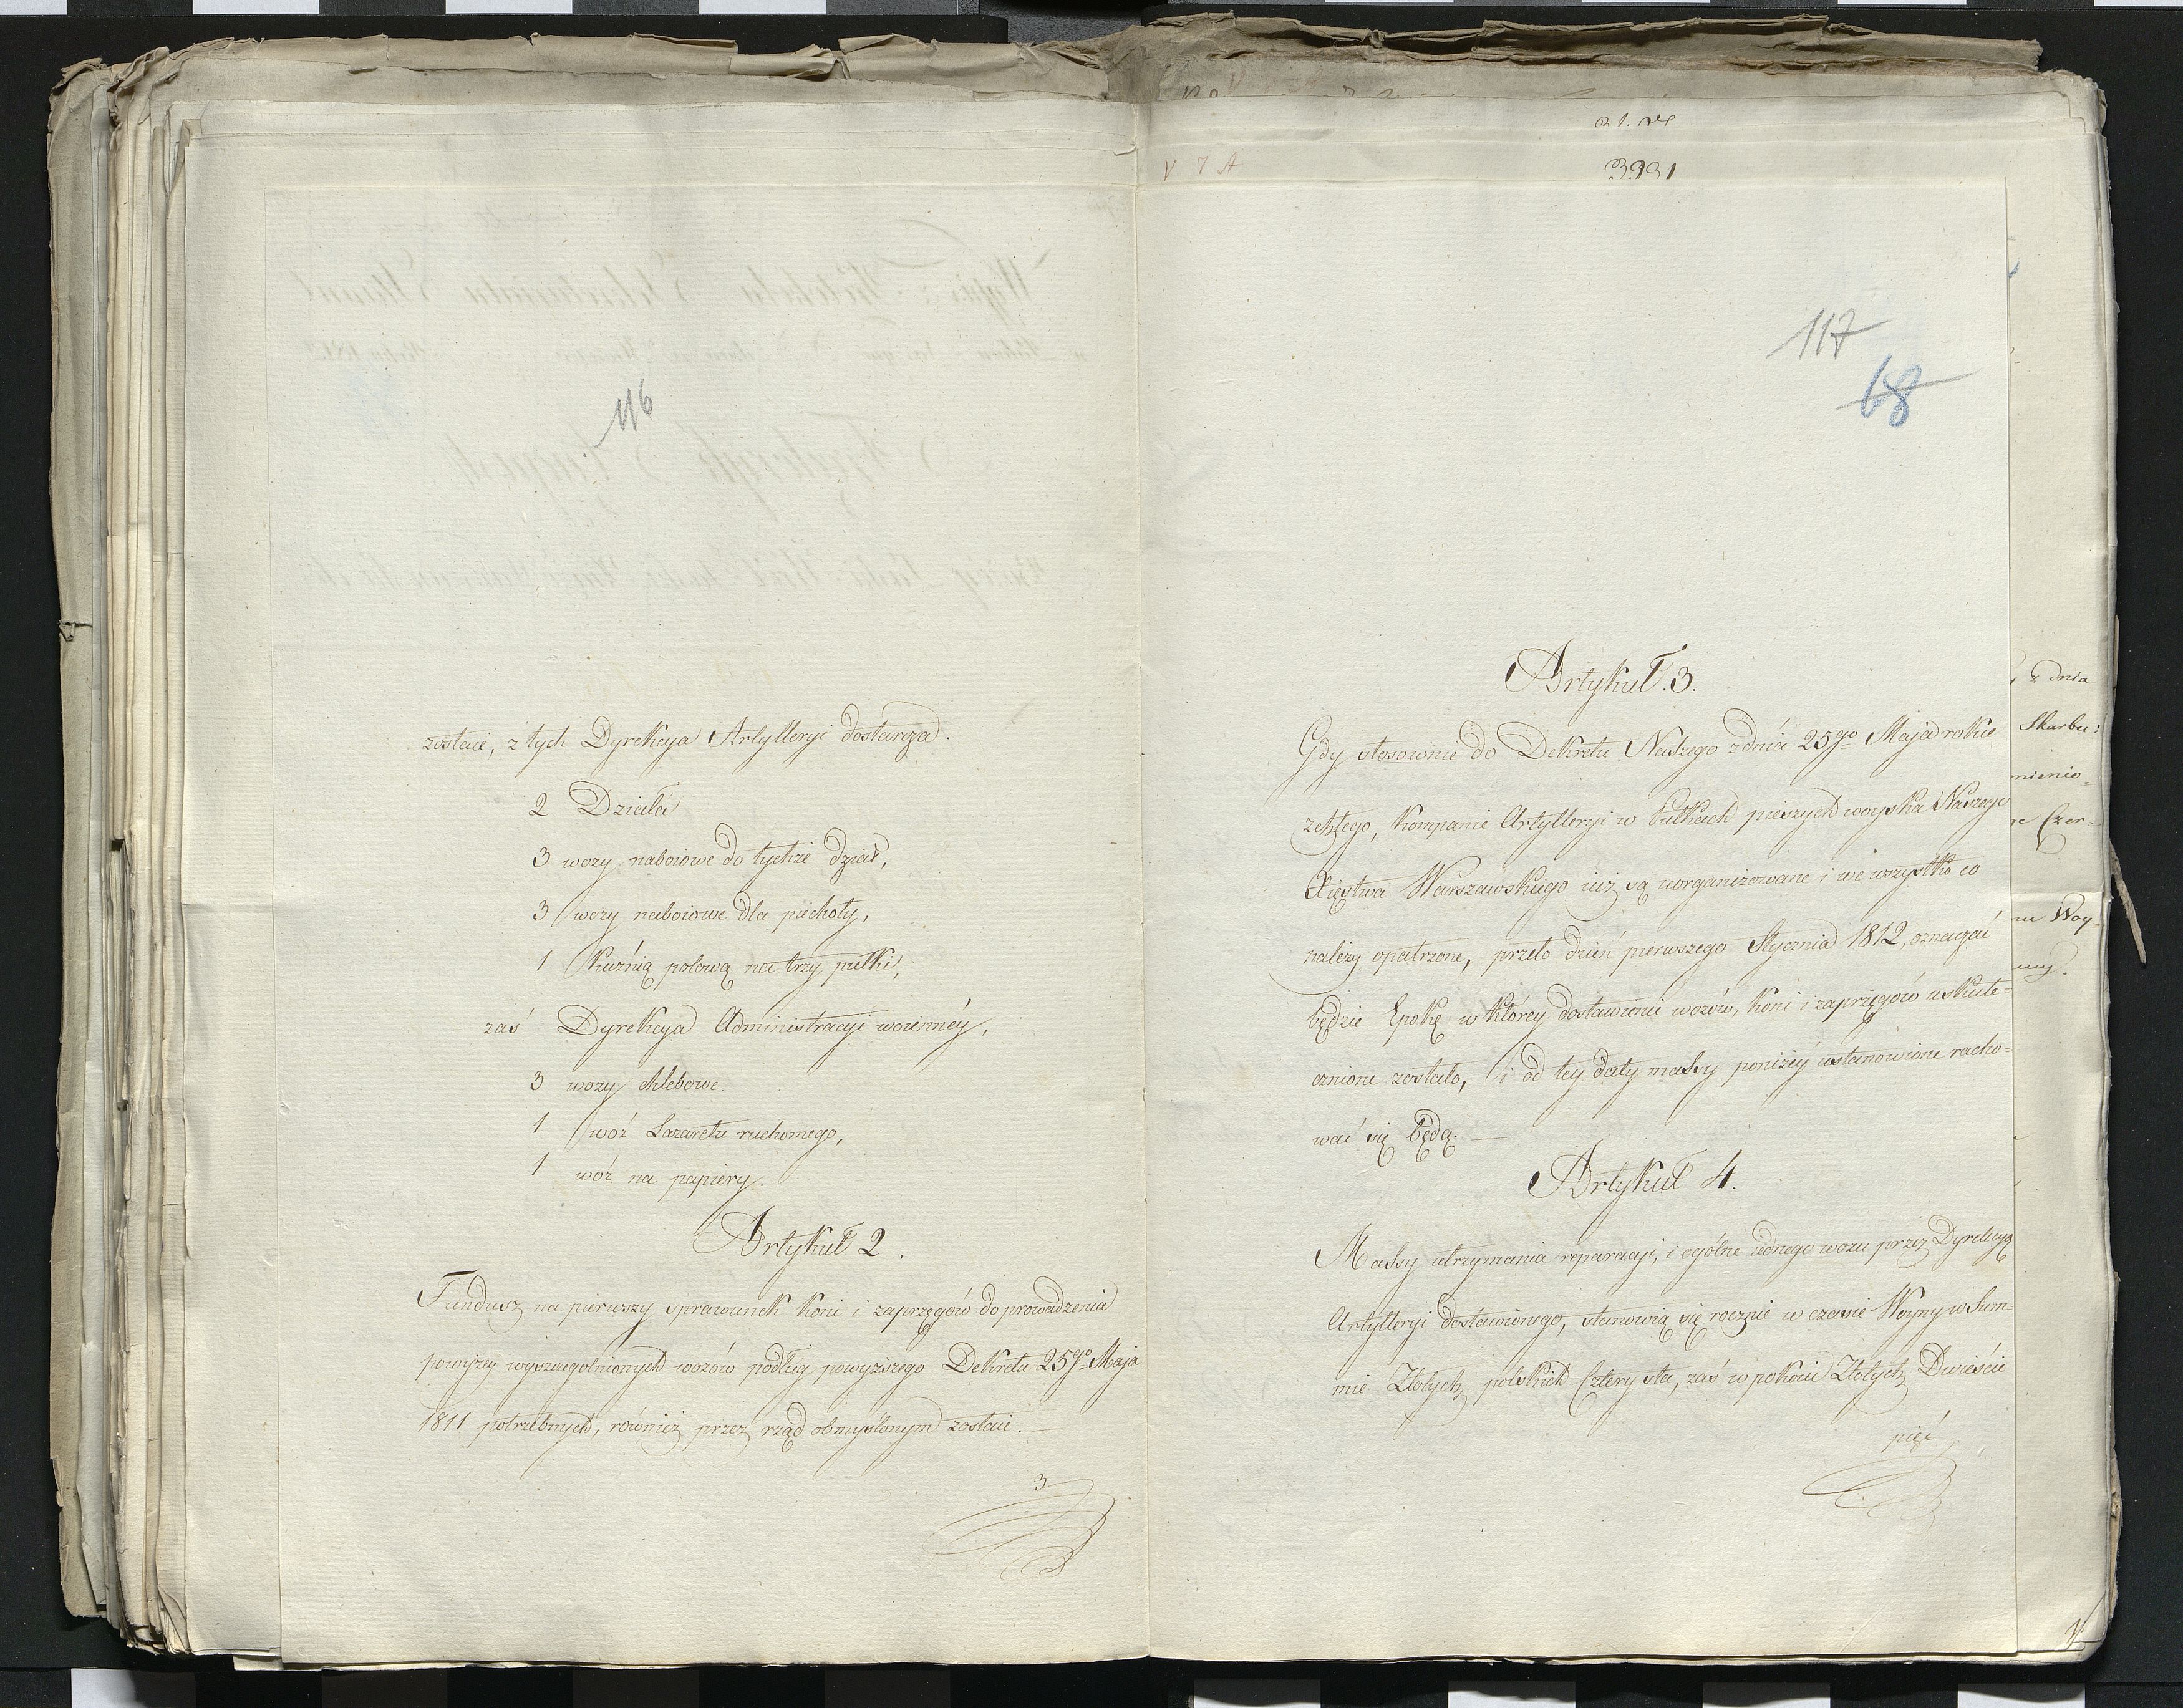 116
zostaie, z tych Dyrekcya Artylleryi dostarcza.
2 Działa
3 wozy naboiowe do tychże dział,
3 wozy naboiowe dla piechoty,
1 Kuźnią polową na trzy pułki,
zaś Dyrekcya Administracyi woienney,
3 wozy chlebowe
1 wóz Lazaretu ruchomego,
1 wóz na papiery.
Artykuł 2.
Fundusz na pierwszy sprawunek koni i zaprzęgów do prowadzenia
powyżey wyszczegolnionych wozów podług powyższego Dekretu 25go Maja
1811 potrzebnych, również przez rząd obmyślonym zostaie. —
3
V 7 A
3931
117
68
Artykuł. 3.
Gdy stosownie do Dekretu Naszego z dnia 25go Maja roku
zeszłego, kompanie Artylleryi w Pułkach pieszych woyska Naszego
Xięstwa Warszawskiego iuż są uorganizowane i we wszystko co
należy opatrzone, przeto dzień pierwszego Stycznia 1812, oznaczać
będzie Epokę w którey dostawienie wozów, koni i zaprzęgów uskute=
cznione zostało, i od tey daty massy poniżey ustanowione racho=
wać się będą. —
Artykuł 4.
Massy utrzymania reparacyi, i ogólne iednego wozu przez Dyrekcyą
Artylleryi dostawionego, stanowią się rocznie w czasie Woyny w Sum=
mie Złotych polskich Czterysta, zaś w pokoiu Złotych Dwieście
pięć
z dnia
Skarbu:
mienio=
Czer=
Woy